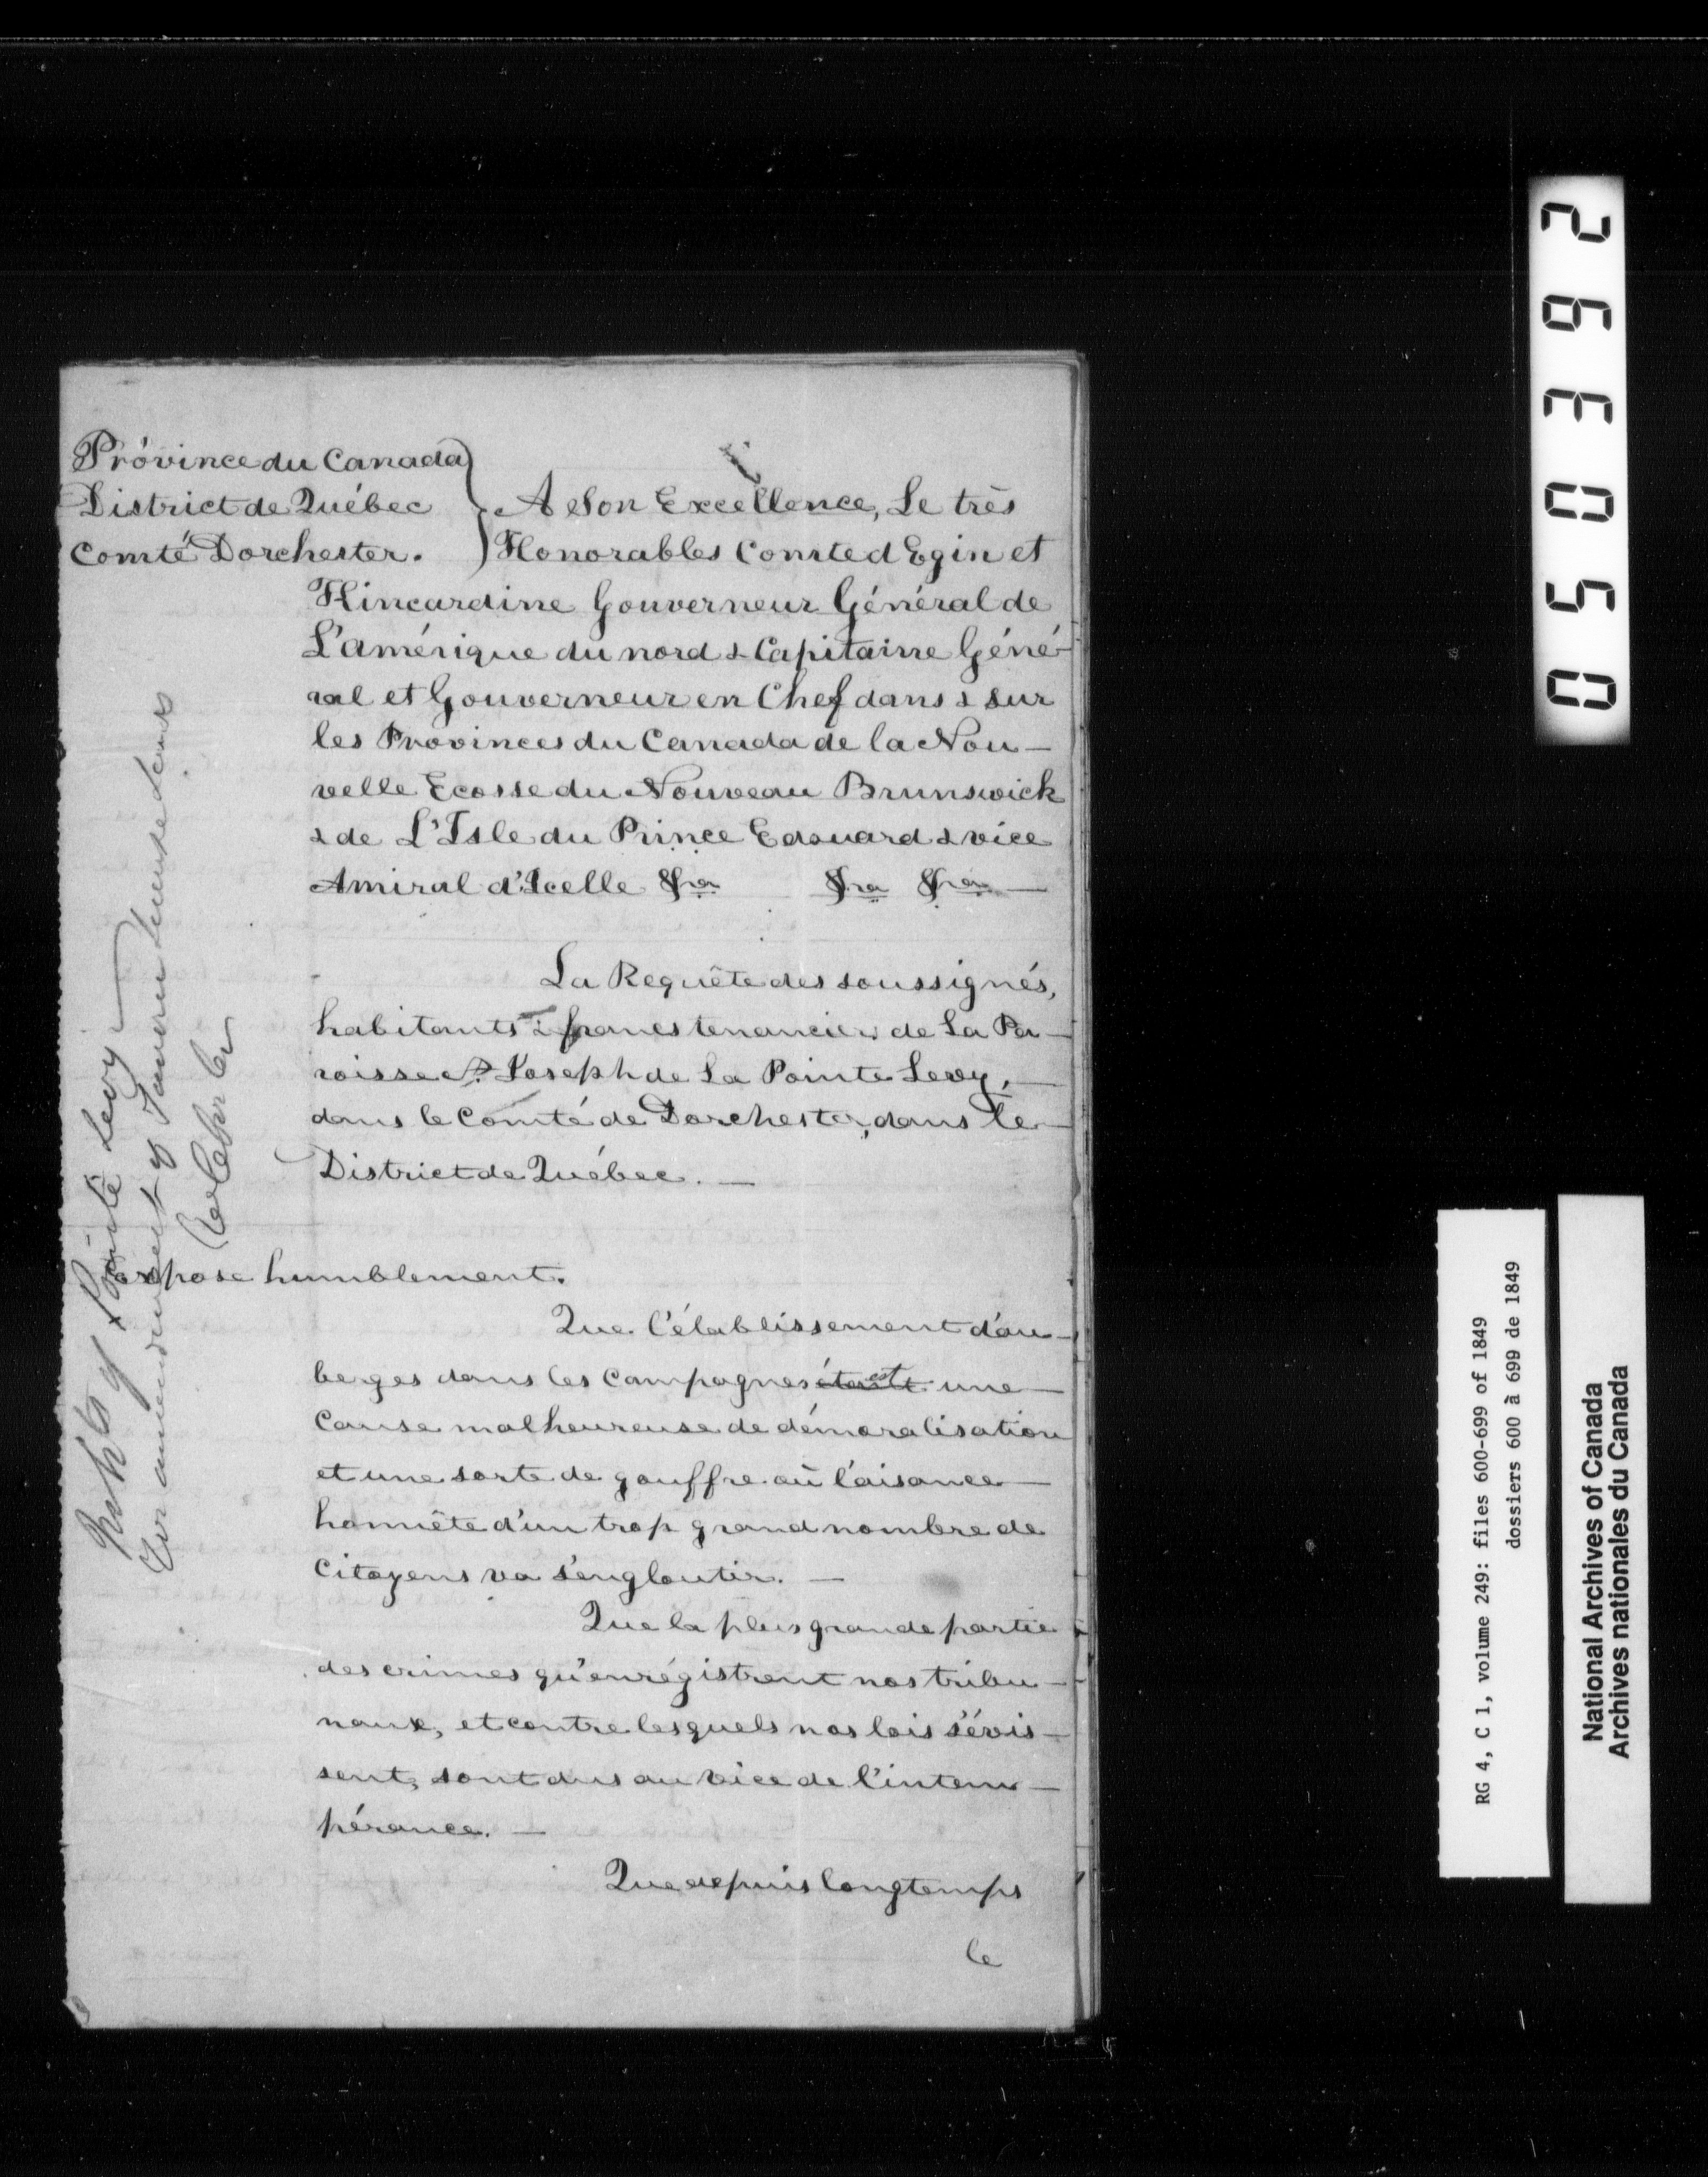 Province du Canada
District de Québec
Comté Dorchester.
A Son Excellence, Le très
Honorables Comte d Egin et
Kincardine Gouverneur Général de
L'amérique du nord & Capitaine Géné-
ral et Gouverneur en Chef dans & sur
les Provinces du Canada de la Nou-
velle Ecosse du Nouveau Brunswick
& de L'Isle du Prince Edouard & vice
Amiral d'Icelle &ca &ca &ca
La Requête des soussignés,
habitants & francs tenanciers de La Pa-
roisse St. Joseph de La Pointe Levy,
dans le Comté de Dorchester, dans le
District de Québec.
Expose humblement.
Que l'établissement d'au-
berges dans les Campagnes étant est une
Cause malheureuse de démoralisation
et une sorte de gouffre où l'aisance
honnête d'un trop grand nombre de
Citoyens va s'engloutir.
Que la plus grande partie
des crimes qu'enrégistrent nos tribu-
naux, et contre lesquels nos lois sévis-
sent, sont dus au vice de l'intem-
pérance.
Que depuis longtemps
le
of Pointe Levy
for amendment of Tavern License Laws
2 6 3 0 5 0
RG 4, C 1, volume 249: files 600-699 of 1849
dossiers 600 à 699 de 1849
National Archives of Canada
Archives nationales du Canada